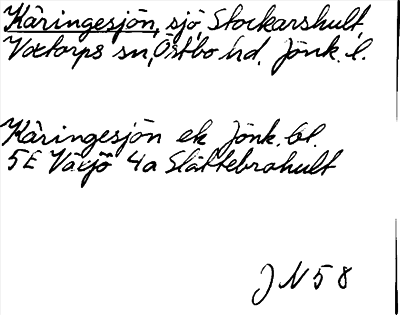 Käringesjön, sjö, Stockarshult,
Voxtorps sn, Östbo hd. Jönk. l.
Käringesjön ek Jönk. bl.
5E Växjö 4a Slättebrohult
J N 5 8